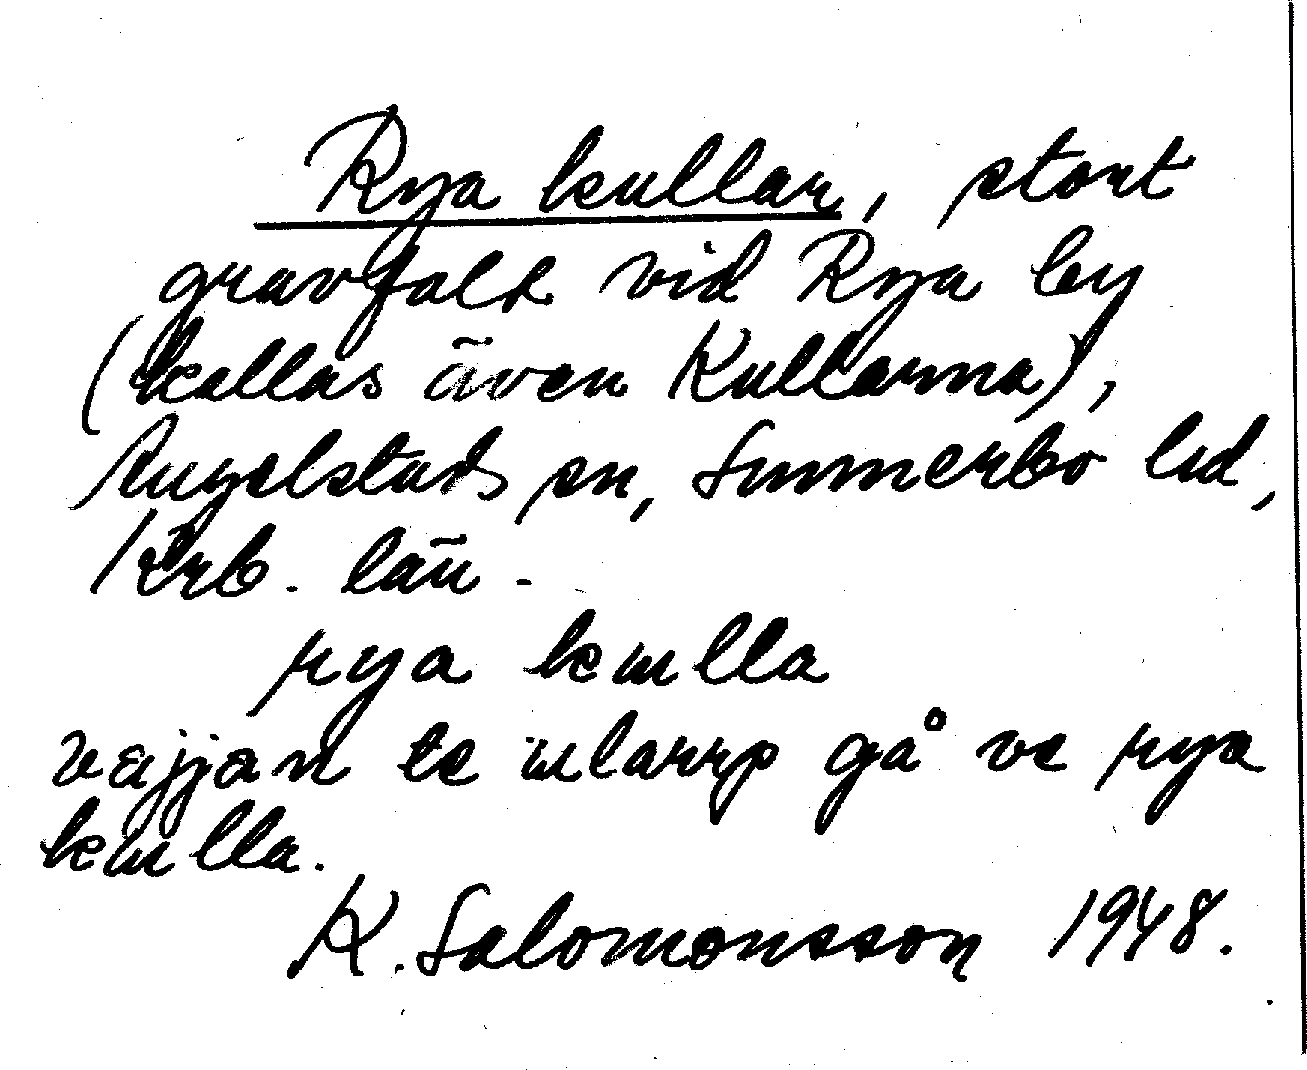 Rya kullar, stort
gravfält vid Rya by
(kallas även Kullarna),
Angelstads sn, Sunnerbo hd,
Krb. län.
rya kulla
väjjän te
gå ve rya
kulla.
K. Salomonsson 1948.